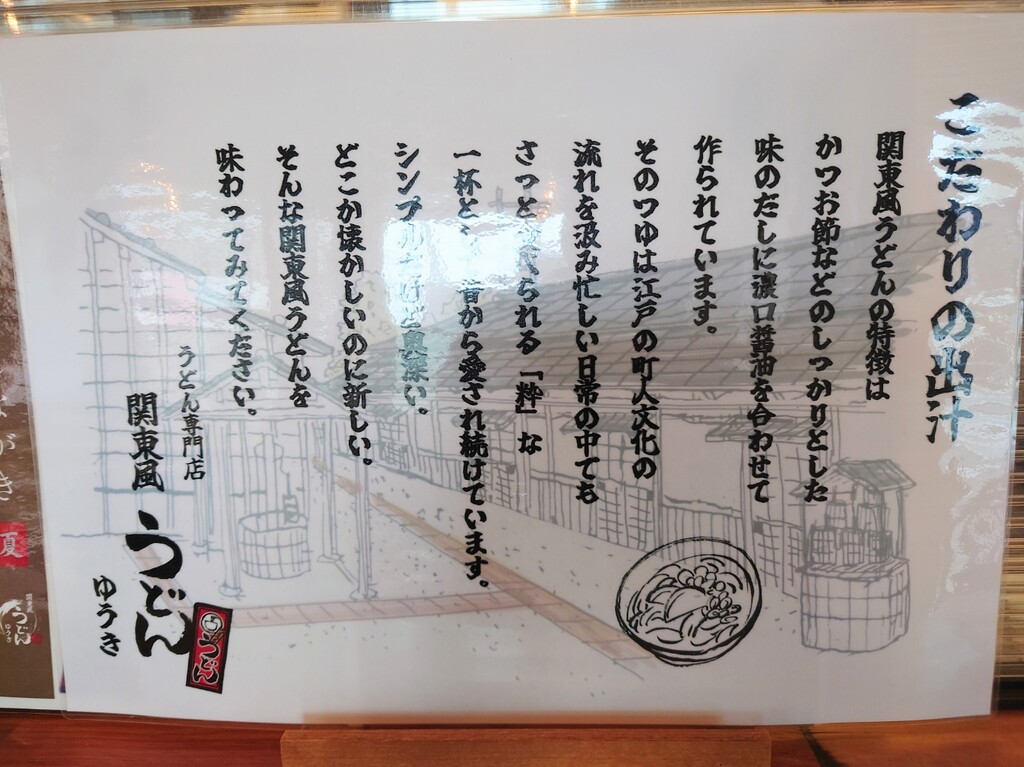 こだわりの出汁
関東風うどんの特徴は
かつお節などのしっかりとした
味のだしに濃口醤油を合わせて
作られています。
そのつゆは江戸の町人文化の
流れを汲み忙しい日常の中でも
さっと食べられる「粋」な
一杯と 昔から愛され続けています。
シンプルだけど奥深い。
どこか懐かしいのに新しい。
そんな関東風うどんを
味わってみてください。
うどん専門店
関東風
うどん
ゆうき
うどん
夏
うどん
ゆうき